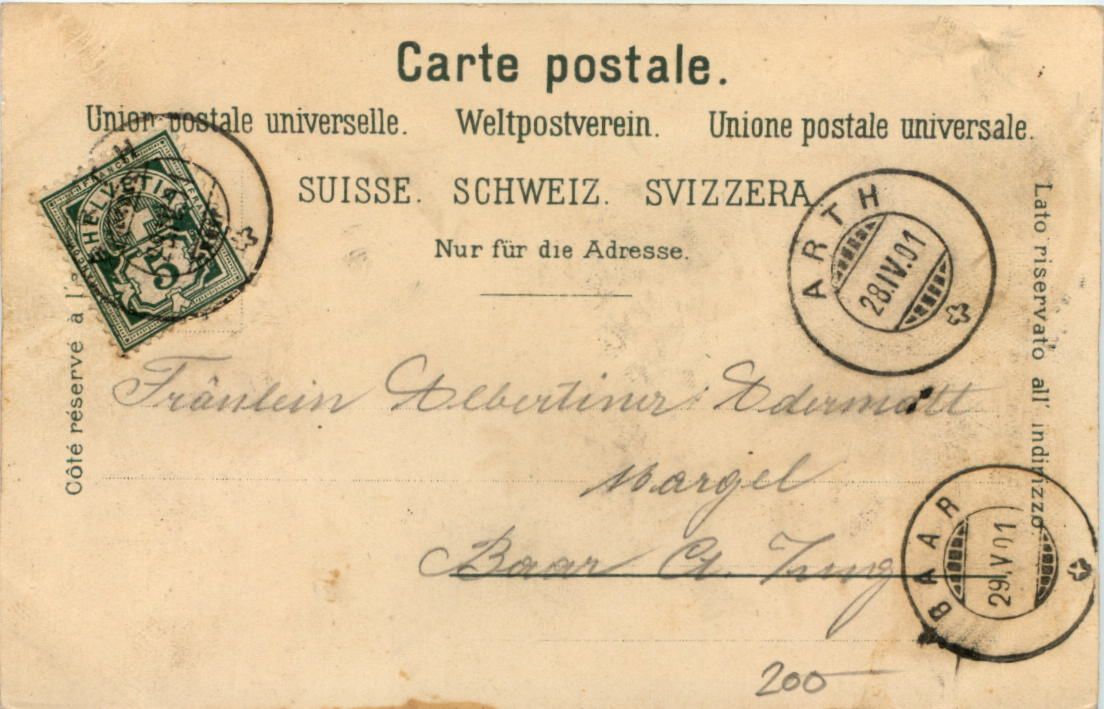 Carte postale.
Union postale universelle. Weltpostverein. Unione postale universale.
SUISSE. SCHWEIZ. SVIZZERA
Nur für die Adresse.
Côté réservé à l'a
Lato riservato all' indirizzo.
HELVETIA
FRANCO
5
ARTH
28.IV.01
Fräulein Albertiner Odermatt
Margel
Baar Ct. Zug
BAAR
29.IV.01
200